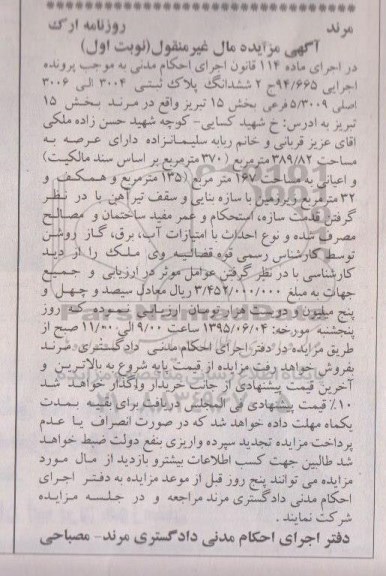 مرند
روزنامه ارک
آگهی مزایده مال غیرمنقول(نوبت اول)
در اجرای ماده ۱۱۴ قانون اجرای احکام مدنی به موجب پرونده
اجرایی ۹۴/۶۶۵ج ۲ ششدانگ پلاک ثبتی ۳۰۰۴ الی ۳۰۰۶
اصلی ۵/۳۰۰۹ فرعی بخش ۱۵ تبریز واقع در مرند بخش ۱۵
تبریز به ادرس: خ شهید کسایی- کوچه شهید حسن زاده ملکی
اقای عزیز قربانی و خانم ربابه سلیمانزاده دارای عرصه به
مساحت ۳۸۹/۸۲ مترمربع (۳۷۰ مترمربع بر اساس سند مالکیت)
و اعیانی به مساحت ۱۶۷ متر مربع (۱۳۵ مترمربع و همکف و
۳۲ مترمربع زیرزمین با سازه بنایی و سقف تیرآهن با در نظر
گرفتن قدمت سازه، استحکام و عمر مفید ساختمان و مصالح
مصرف شده و نوع احداث با امتیازات آب، برق، گاز روشن
توسط کارشناس رسمی قوه قضائیه وی ملک را از دید
کارشناسی با در نظر گرفتن عوامل موثر در ارزیابی و جمیع
جهات به مبلغ ۳/۴۵۲/۰۰۰/۰۰۰ ریال معادل سیصد و چهل و
پنج میلیون و دویست هزار تومان ارزیابی نموده که روز
پنجشنبه مورخه: ۱۳۹۵/۰۶/۰۴ ساعت ۹/۰۰ الی ۱۱/۰۰ صبح از
طریق مزایده در دفتر اجرای احکام مدنی دادگستری مرند
بفروش خواهد رفت مزایده از قیمت پایه شروع به بالاترین و
آخرین قیمت پیشنهادی از جانب خریدار واگذار خواهد شد
۱۰٪ قیمت پیشنهادی فی المجلس دریافت برای بقیه بمدت
یکماه مهلت داده خواهد شد که در صورت انصراف یا عدم
پرداخت مزایده تجدید سپرده واریزی بنفع دولت ضبط خواهد
شد طالبین جهت کسب اطلاعات بیشترو بازدید از مال مورد
مزایده می توانند پنج روز قبل از موعد مزایده به دفتر اجرای
احکام مدنی دادگستری مرند مراجعه و در جلسه مزایده
شرکت نمایند .
دفتر اجرای احکام مدنی دادگستری مرند- مصباحی